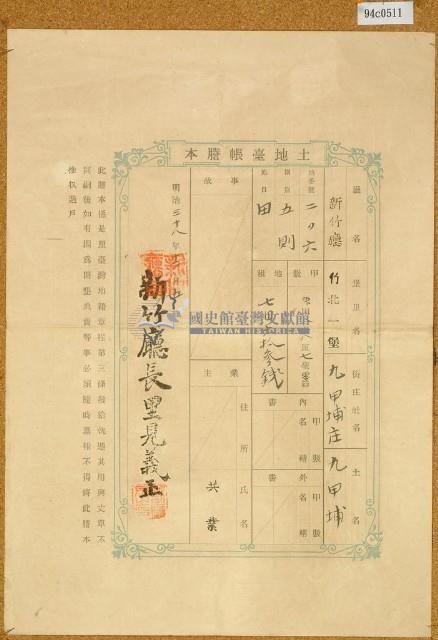 94c0511
土地臺帳謄本
廳名 新竹廳
堡里名 竹北一堡
街庄社名 九甲埔庄
土名 九甲埔
地番號 二〇六
則別 五則
地目 田
甲數
地租
拾參錢
內書
甲數
名稱
外書
甲數
名稱
事故
業主
住所氏名
共業
明治三十八年
新竹廳長里見義正
此謄本係是照臺灣地籍章程第三條發給執憑其用與丈單不
同嗣後如有因為開墾典賣等事必須隨時稟報不得將此謄本
推收過戶
國史館臺灣文獻館
TAIWAN HISTORICA